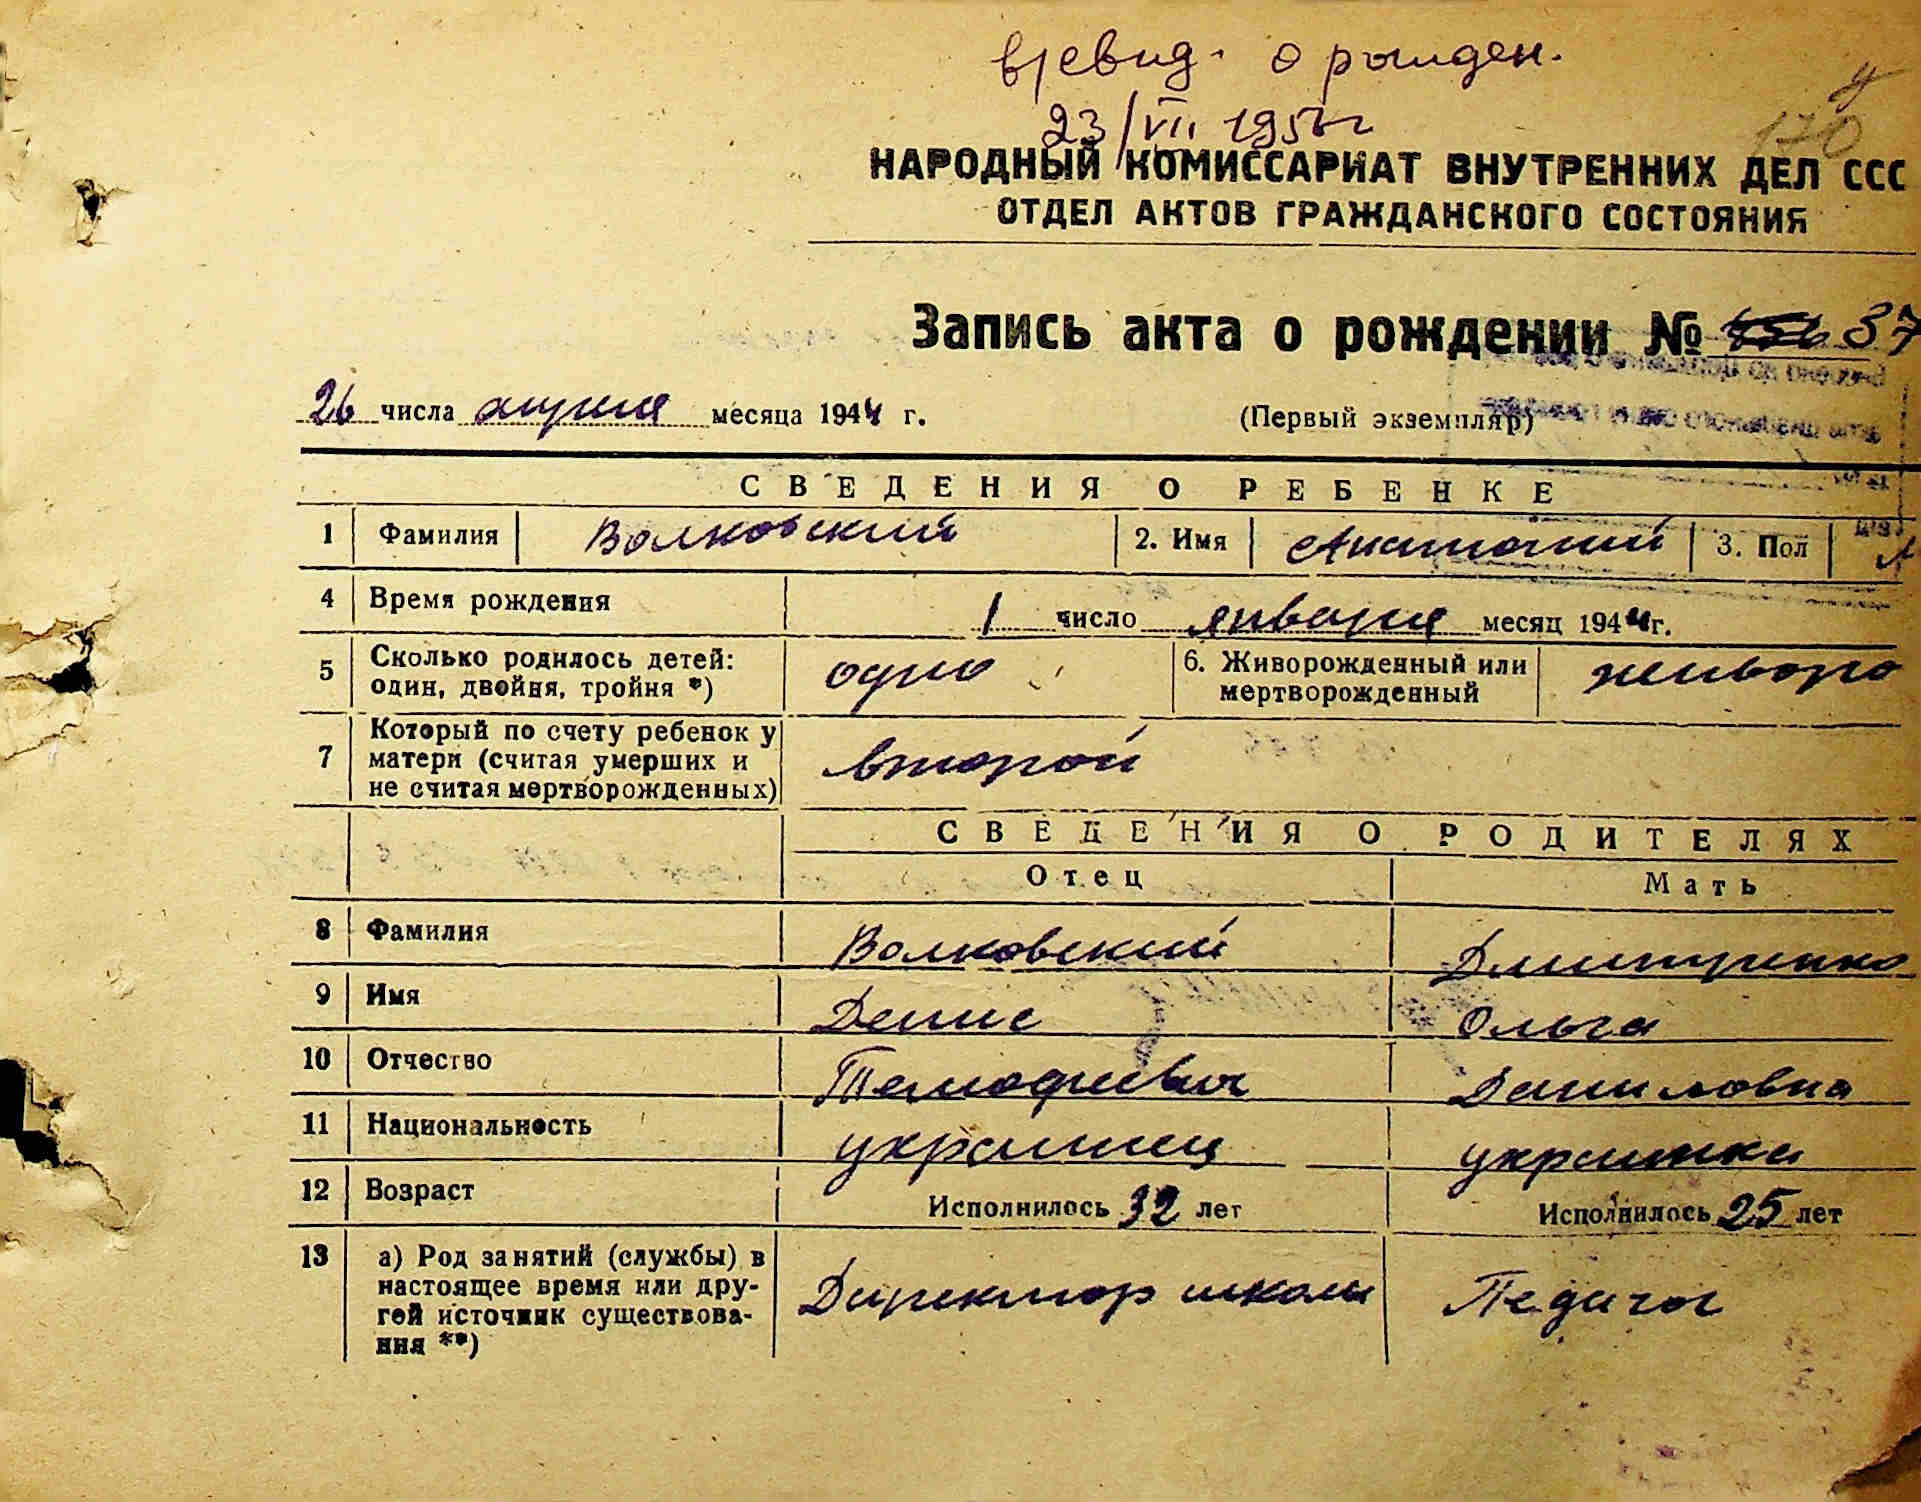 о рожден.
23/VII
170
НАРОДНЫЙ КОМИССАРИАТ ВНУТРЕННИХ ДЕЛ ССС
ОТДЕЛ АКТОВ ГРАЖДАНСКОГО СОСТОЯНИЯ
Запись акта о рождении № 37
26 числа апреля месяца 1944 г. (Первый экземпляр)
СВЕДЕНИЯ О РЕБЕНКЕ
1 Фамилия Волковский 2. Имя Анатолий 3. Пол М
4 Время рождения 1 число января месяц 1944г.
5 Сколько родилось детей: один, двойня, тройня *) одно 6. Живорожденный или мертворожденный живоро
7 Который по счету ребенок у матери (считая умерших и не считая мертворожденных) второй
СВЕДЕНИЯ О РОДИТЕЛЯХ
Отец Мать
8 Фамилия Волковский Дмитренко
9 Имя Денис Ольга
10 Отчество Темофиевич Даниловна
11 Национальность украинец украинка
12 Возраст Исполнилось 32 лет Исполнилось 25 лет
13 а) Род занятий (службы) в настоящее время или дру-
гей источник существова-
ния **) Директор школы Педагог